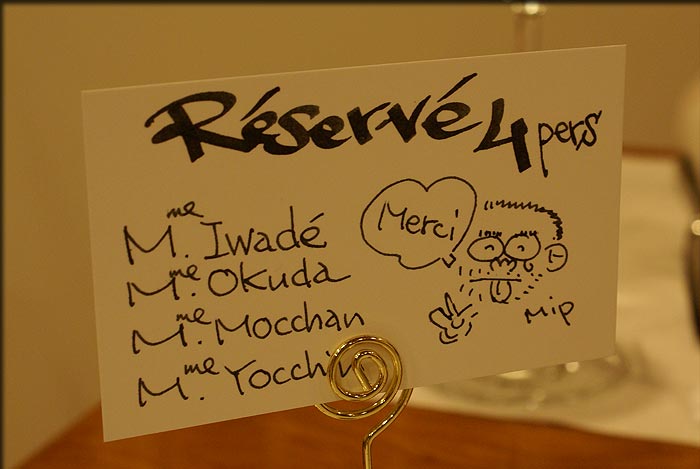 Réservé 4 pers
Mme. Iwadé
Mme. Okuda
Mme. Mocchan
Mme. Yocchin
Merci
Mip